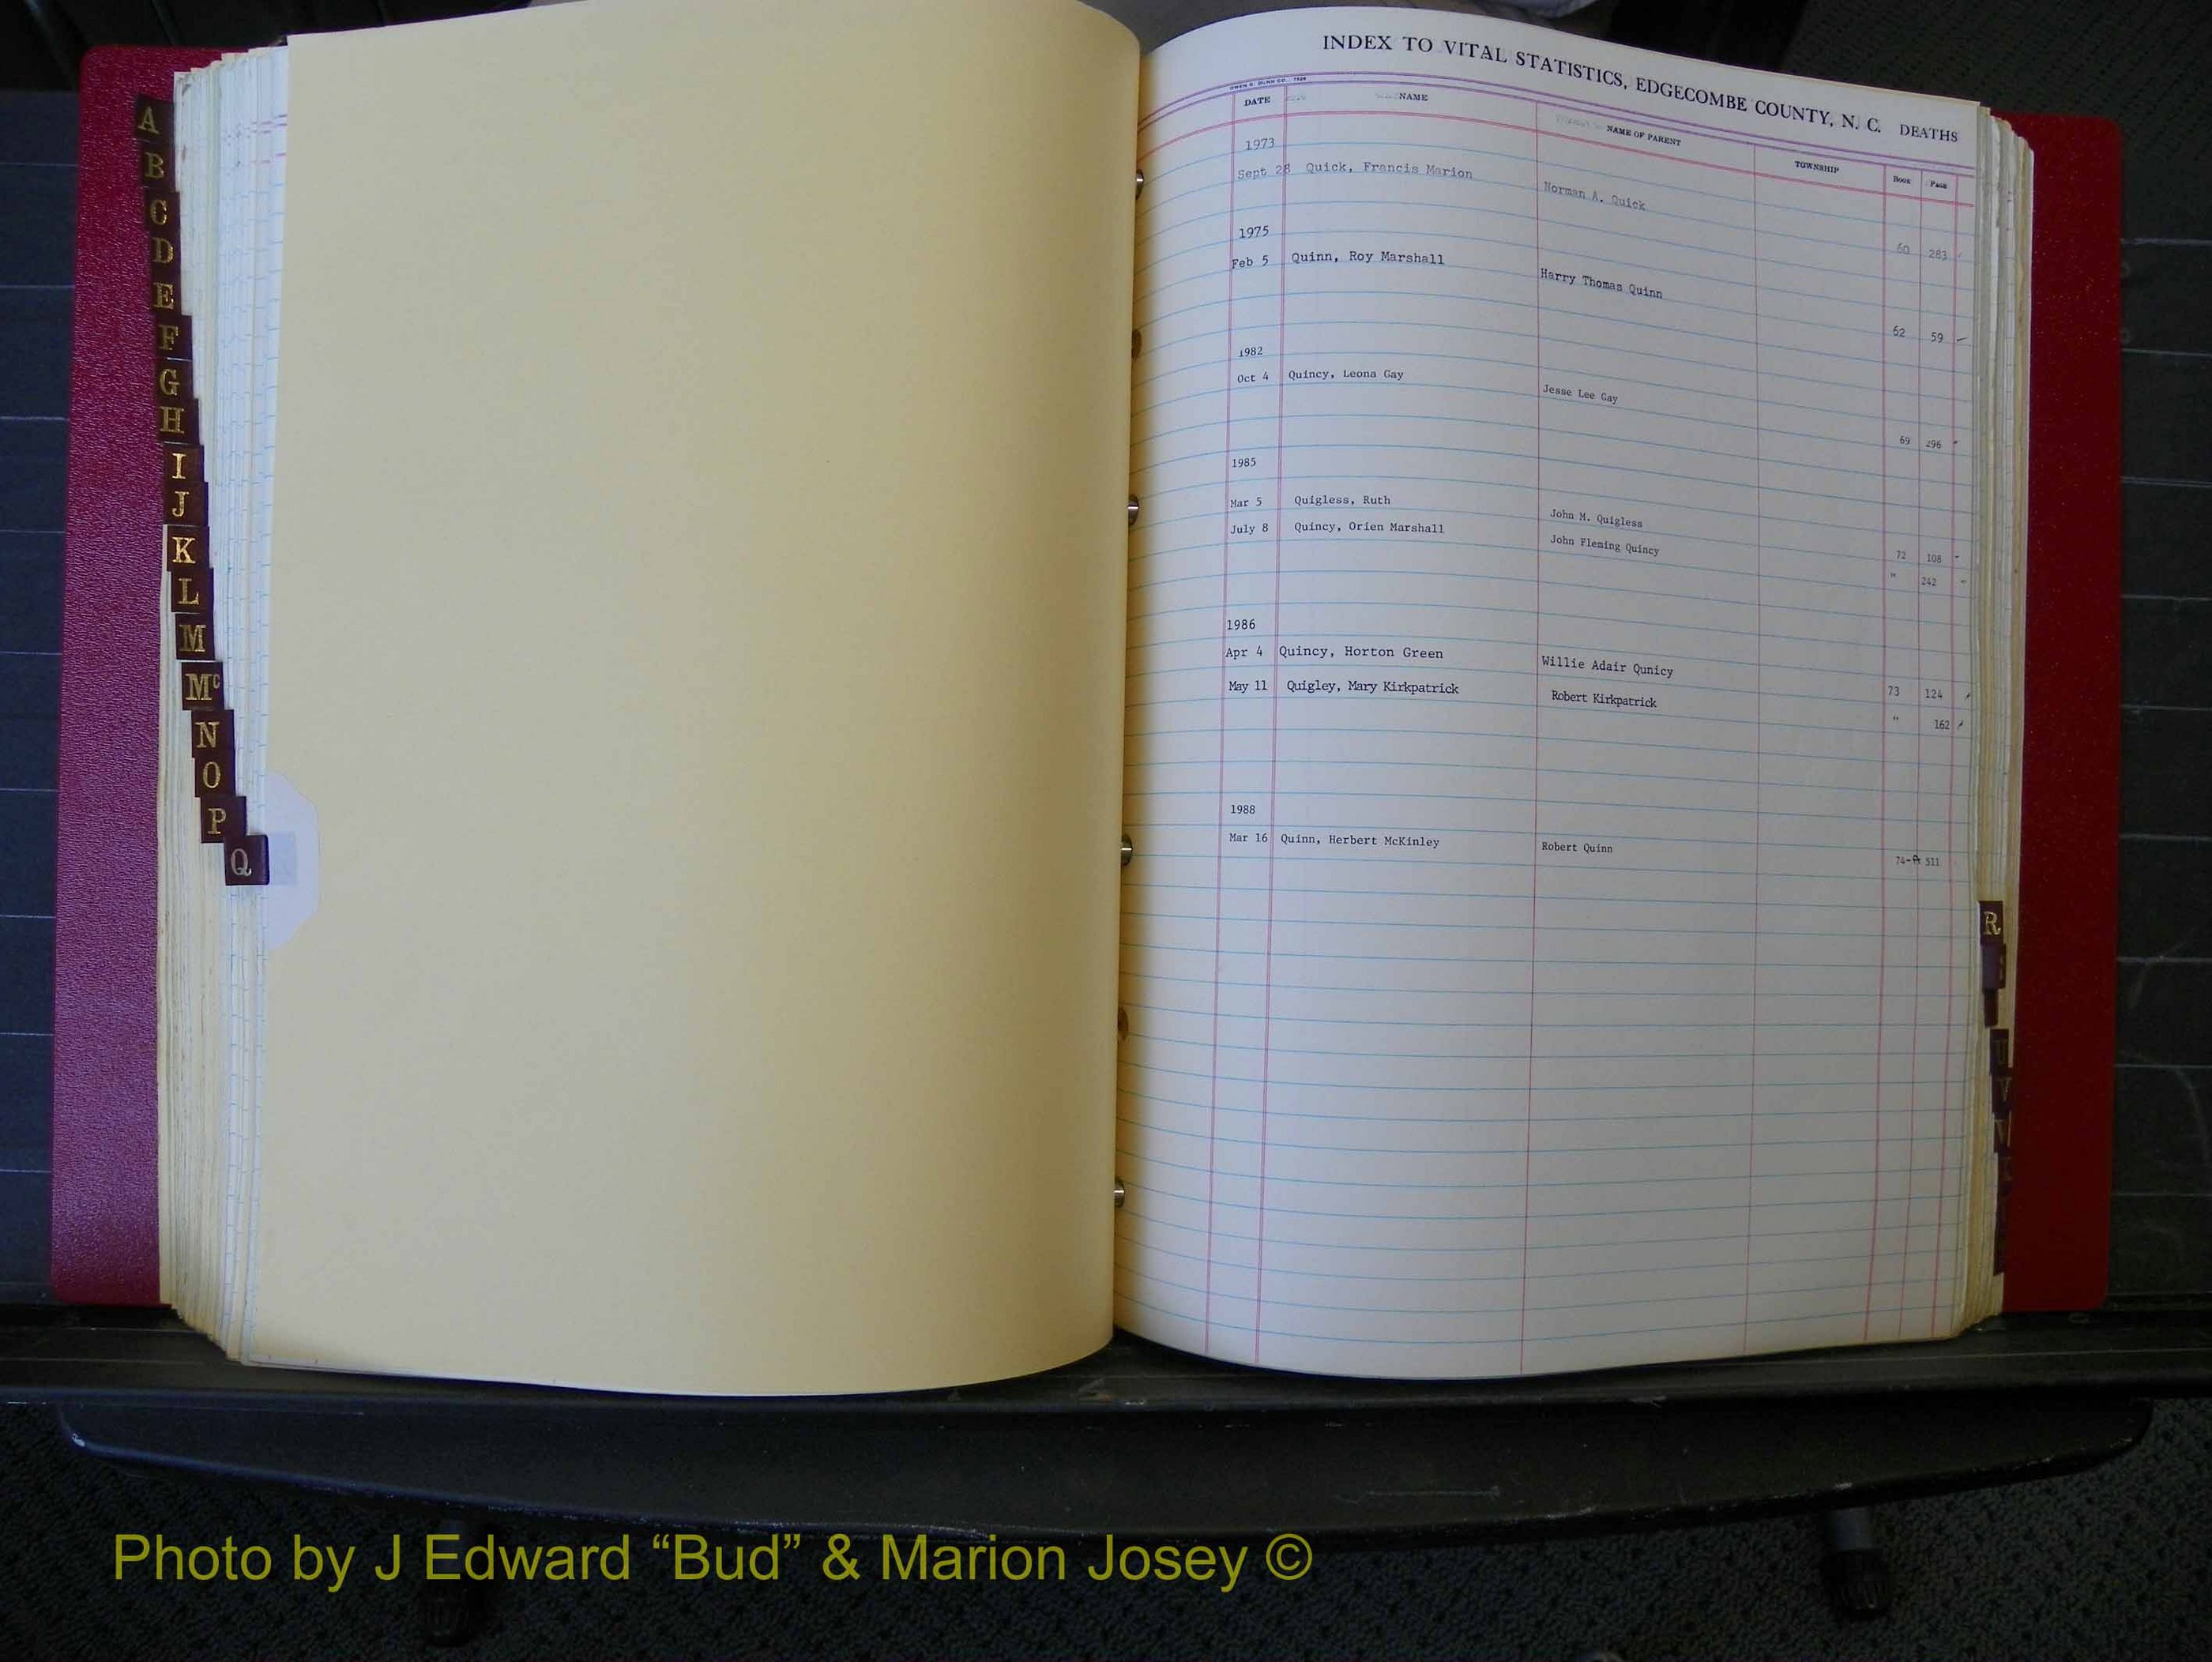 A
B
C
D
E
F
G
H
I
J
K
L
M
Mc
N
O
P
Q
INDEX TO VITAL STATISTICS, EDGECOMBE COUNTY, N. C. DEATHS
DATE NAME NAME OF PARENT TOWNSHIP Book Page
1973
Sept 28 Quick, Francis Marion Norman A. Quick 60 283
1975
Feb 5 Quinn, Roy Marshall Harry Thomas Quinn 62 59
1982
Oct 4 Quincy, Leona Gay Jesse Lee Gay 69 296
1985
Mar 5 Quigless, Ruth John M. Quigless 72 108
July 8 Quincy, Orien Marshall John Fleming Quincy " 242
1986
Apr 4 Quincy, Horton Green Willie Adair Qunicy 73 124
May 11 Quigley, Mary Kirkpatrick Robert Kirkpatrick " 162
1988
Mar 16 Quinn, Herbert McKinley Robert Quinn 74- 511
R
U
V
Photo by J Edward “Bud” & Marion Josey ©